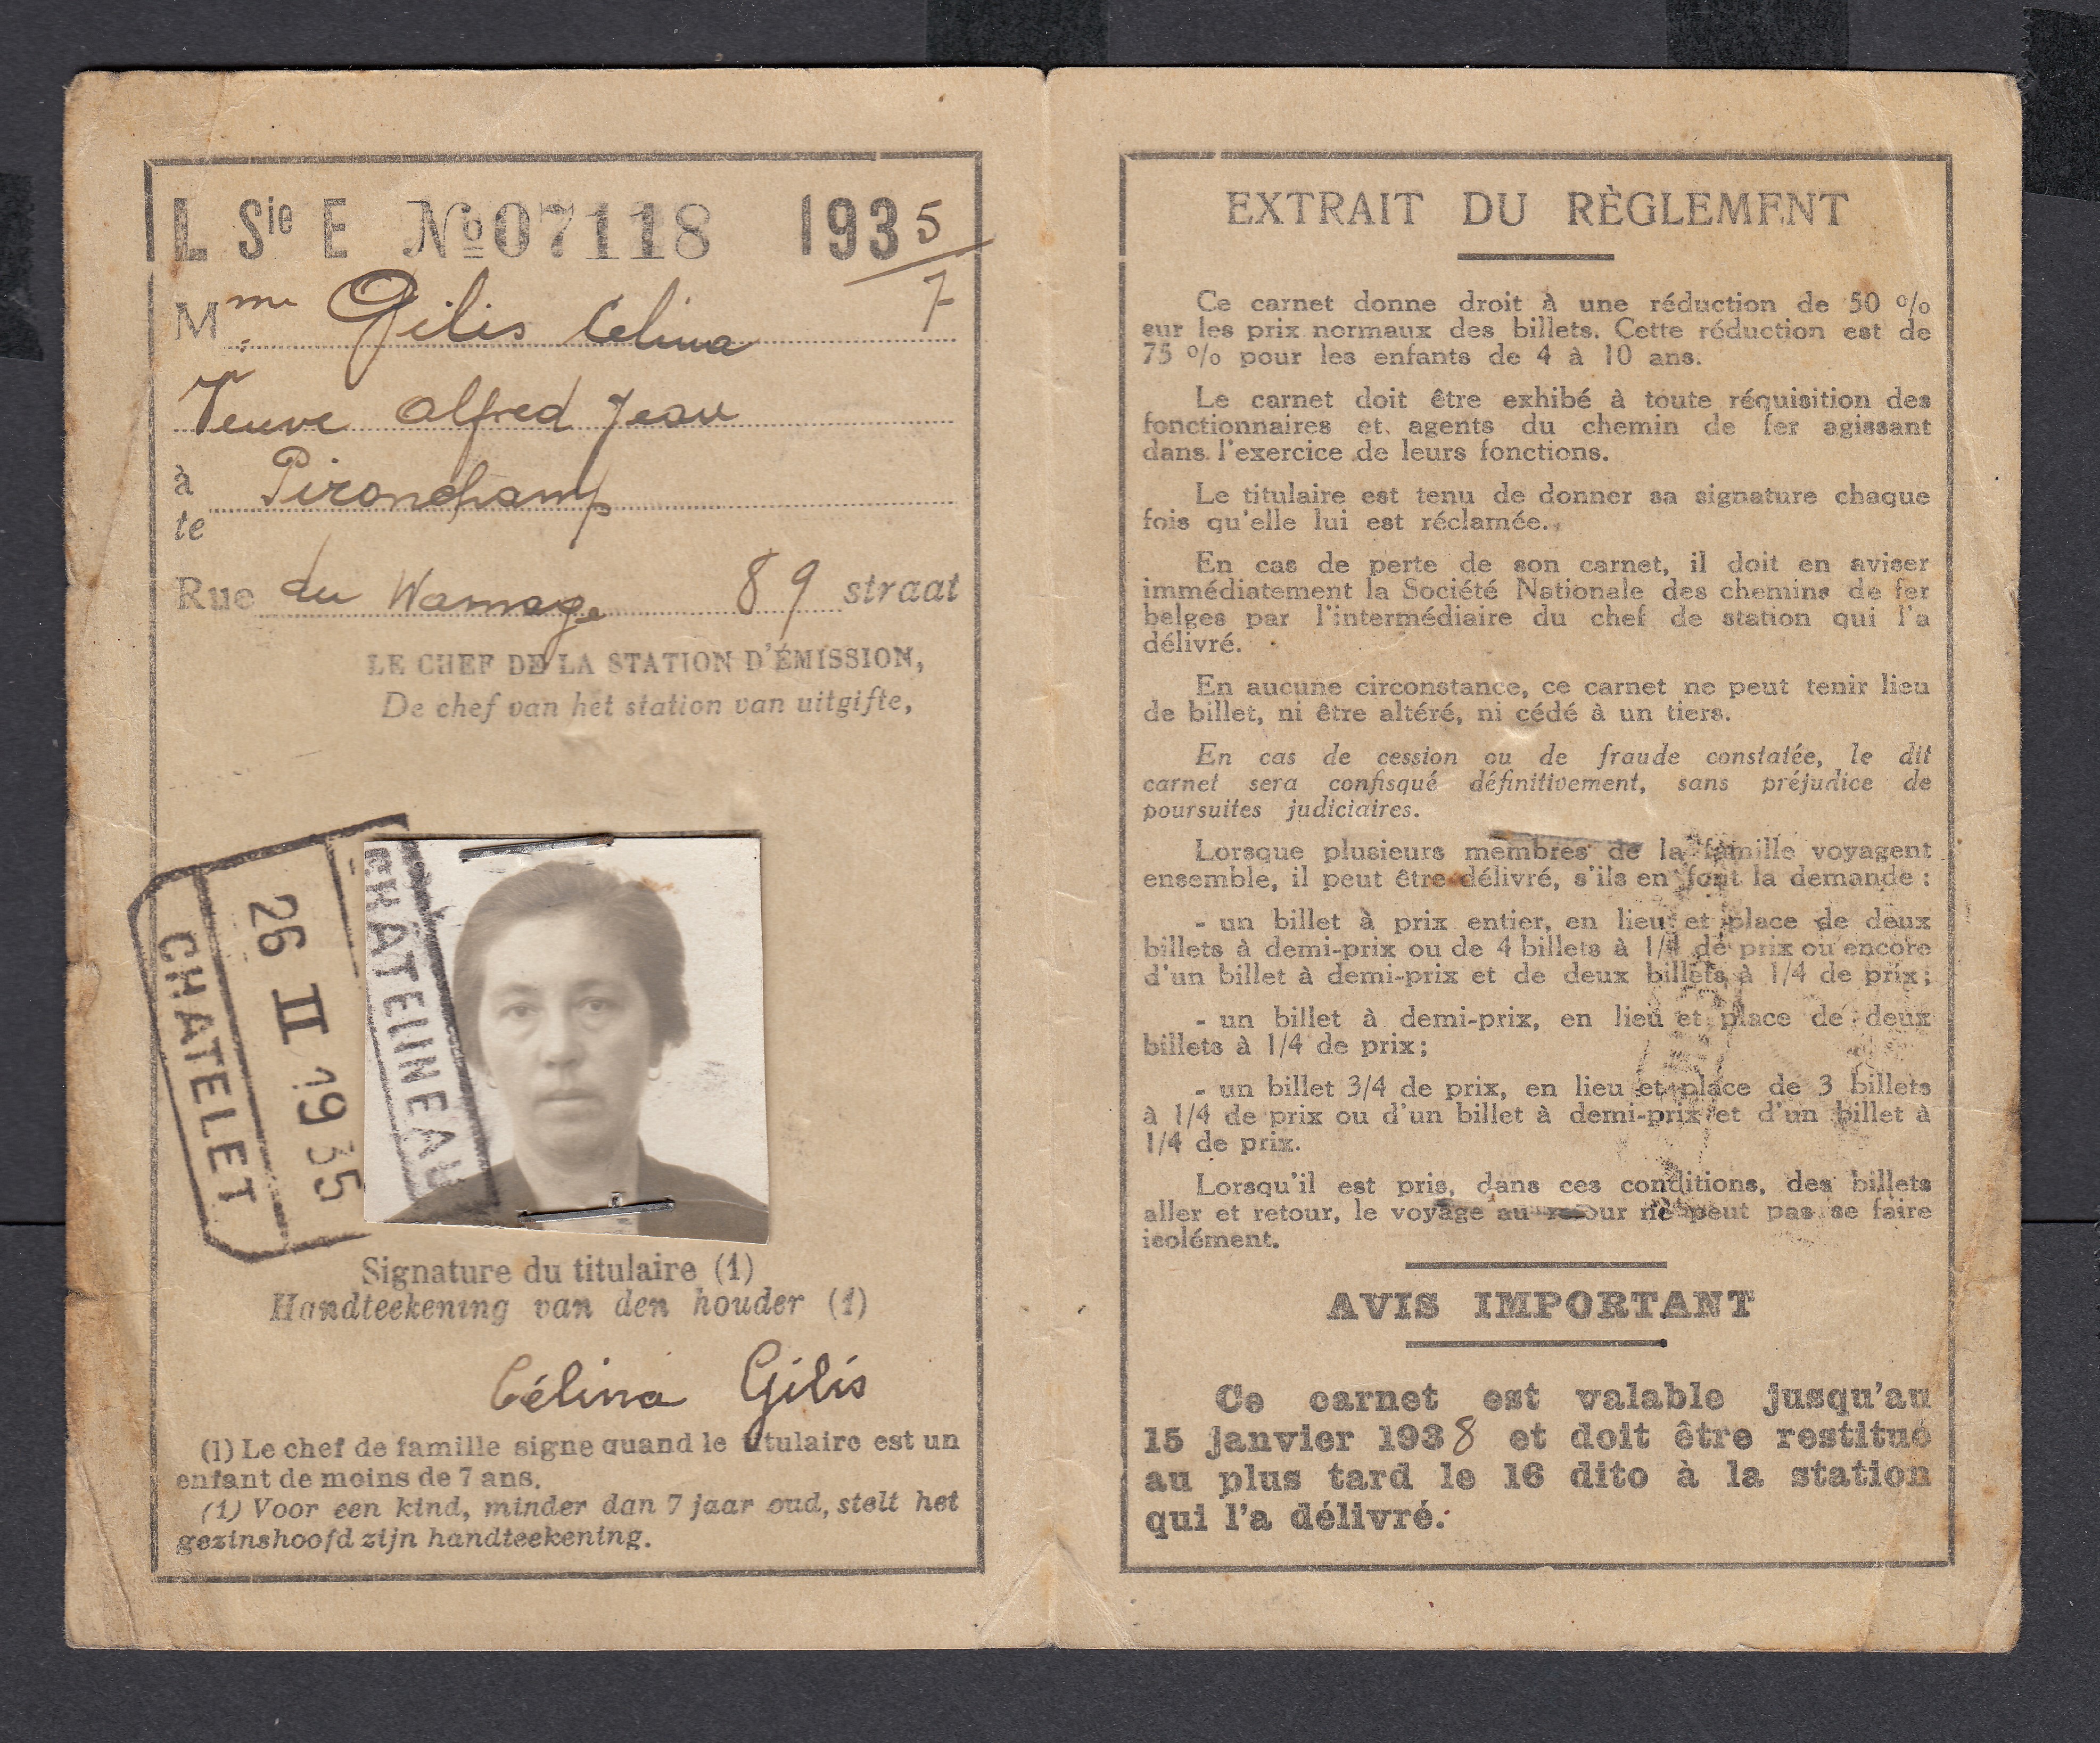 L Sie E No 07118 1935/7
Mme Gilis Celina
Veuve Alfred Jean
à Pironchamp
te
Rue du Wamage 89 straat
LE CHEF DE LA STATION D'ÉMISSION,
De chef van het station van uitgifte,
CHÂTELINEAU
26 II 1935
CHATELET
Signature du titulaire (1)
Handteekening van den houder (1)
Célina Gilis
(1) Le chef de famille signe quand le titulaire est un
enfant de moins de 7 ans.
(1) Voor een kind, minder dan 7 jaar oud, stelt het
gezinshoofd zijn handteekening.
EXTRAIT DU RÈGLEMENT
Ce carnet donne droit à une réduction de 50 %
sur les prix normaux des billets. Cette réduction est de
75 % pour les enfants de 4 à 10 ans.
Le carnet doit être exhibé à toute réquisition des
fonctionnaires et agents du chemin de fer agissant
dans l'exercice de leurs fonctions.
Le titulaire est tenu de donner sa signature chaque
fois qu'elle lui est réclamée.
En cas de perte de son carnet, il doit en aviser
immédiatement la Société Nationale des chemins de fer
belges par l'intermédiaire du chef de station qui l'a
délivré.
En aucune circonstance, ce carnet ne peut tenir lieu
de billet, ni être altéré, ni cédé à un tiers.
En cas de cession ou de fraude constatée, le dit
carnet sera confisqué définitivement, sans préjudice de
poursuites judiciaires.
Lorsque plusieurs membres de la famille voyagent
ensemble, il peut être délivré, s'ils en font la demande :
- un billet à prix entier, en lieu et place de deux
billets à demi-prix ou de 4 billets à 1/4 de prix ou encore
d'un billet à demi-prix et de deux billets à 1/4 de prix;
- un billet à demi-prix, en lieu et place de deux
billets à 1/4 de prix;
- un billet 3/4 de prix, en lieu et place de 3 billets
à 1/4 de prix ou d'un billet à demi-prix et d'un billet à
1/4 de prix.
Lorsqu'il est pris, dans ces conditions, des billets
aller et retour, le voyage au retour ne peut pas se faire
isolément.
AVIS IMPORTANT
Ce carnet est valable jusqu'au
15 janvier 1938 et doit être restitué
au plus tard le 16 dito à la station
qui l'a délivré.